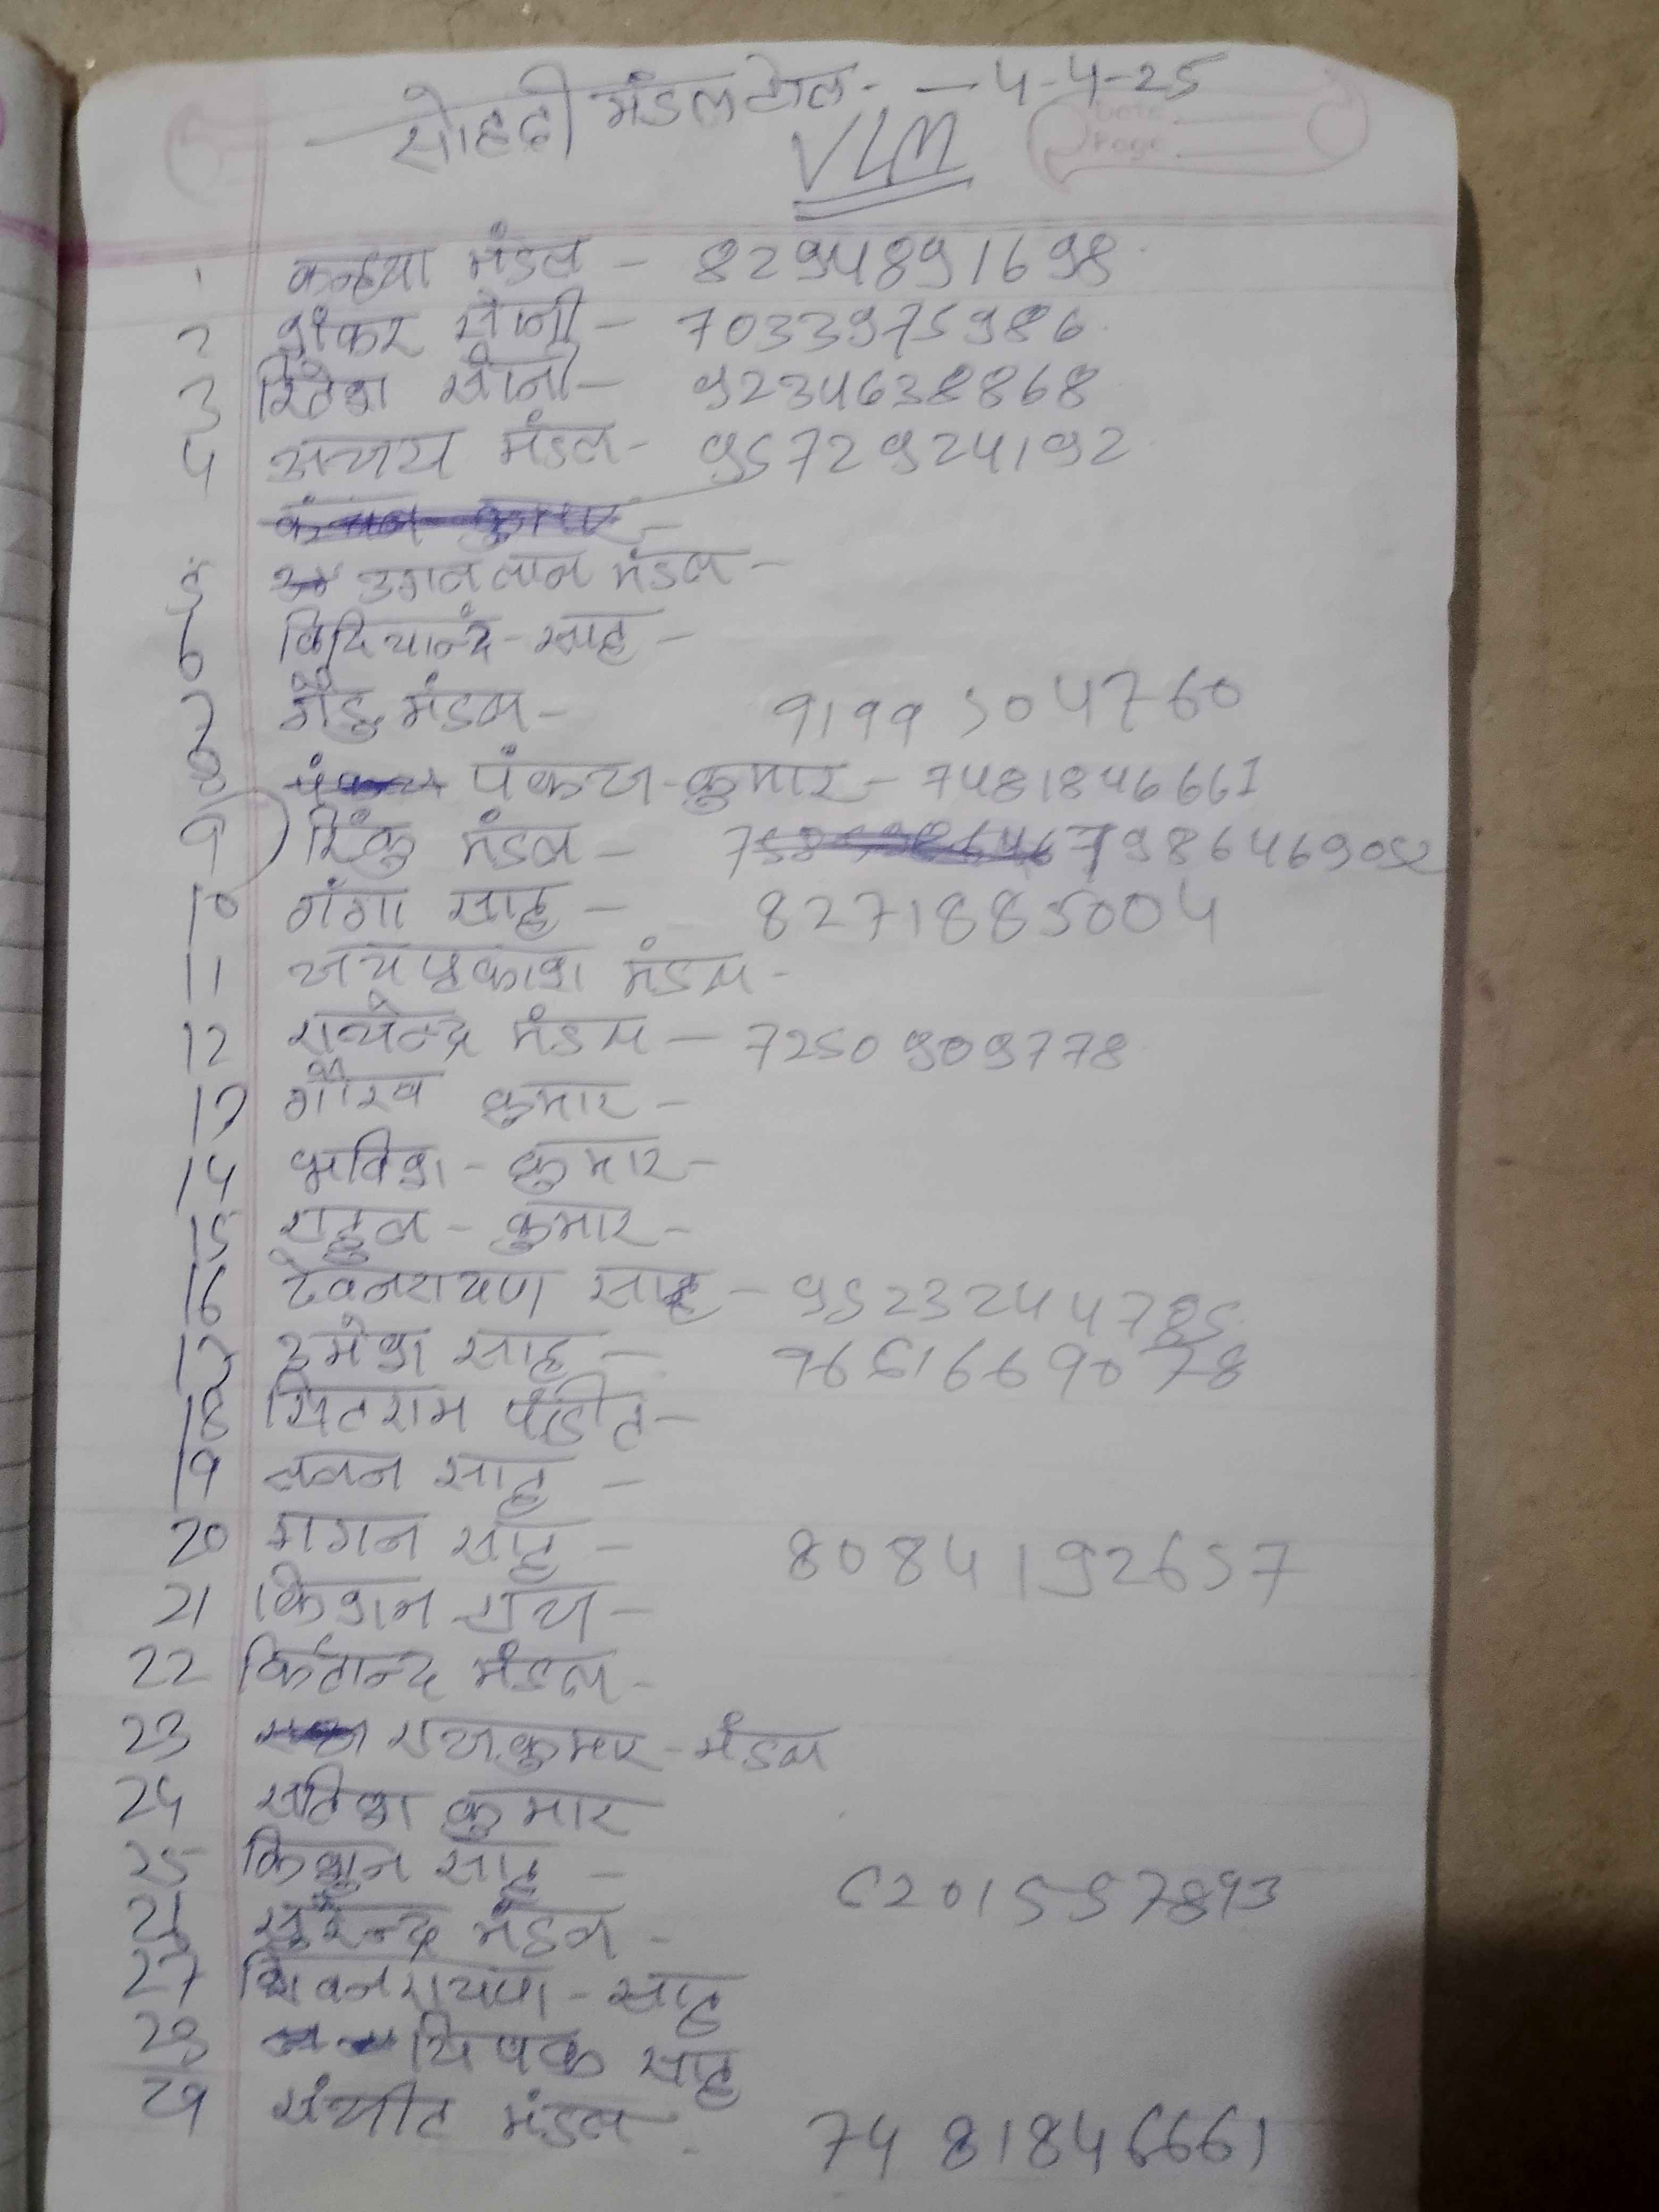 सोहदी मंडल टोल - 4-4-25
VLM
Date
Page
1 कन्हया मंडल - 8294891698
2 शंकर सोनी - 7033975986
3 रितेश सोनी - 9234638868
4 अजय मंडल - 9572924192
5 उगनलाल मंडल -
6 विदियान्द - साह -
7 गेंडु मंडल - 9199504760
8 पंकज - कुमार - 7481846661
9 रिंकु मंडल - 7986469052
10 गंगा साह - 8271885004
11 जयप्रकाश मंडल -
12 राजेन्द्र मंडल - 7250909778
13 गौरव कुमार -
14 भविश - कुमार -
15 राहुल - कुमार -
16 देवनरायण साह - 9523244785
17 उमेश साह - 9661669078
18 सितराम पंडीत -
19 ललन साह -
20 मगन साह - 8084192657
21 किशन राय -
22 किर्तान्द मंडल -
23 राजकुमार - मंडल
24 सतिश कुमार
25 किशुन साह - 6201557893
26 सुरेन्द्र मंडल -
27 शिवनरायण - साह
28 साह
29 संजीत मंडल 7481846661